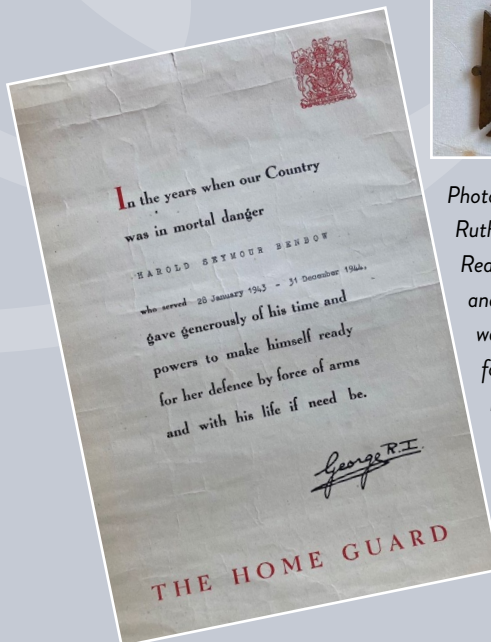 In the years when our Country
was in mortal danger
HAROLD SEYMOUR BENBOW
who served 28 January 1943 - 31 December 1944.
gave generously of his time and
powers to make himself ready
for her defence by force of arms
and with his life if need be.
George R.I.
THE HOME GUARD
Photo
Ruth
Rea
and
wa
fo